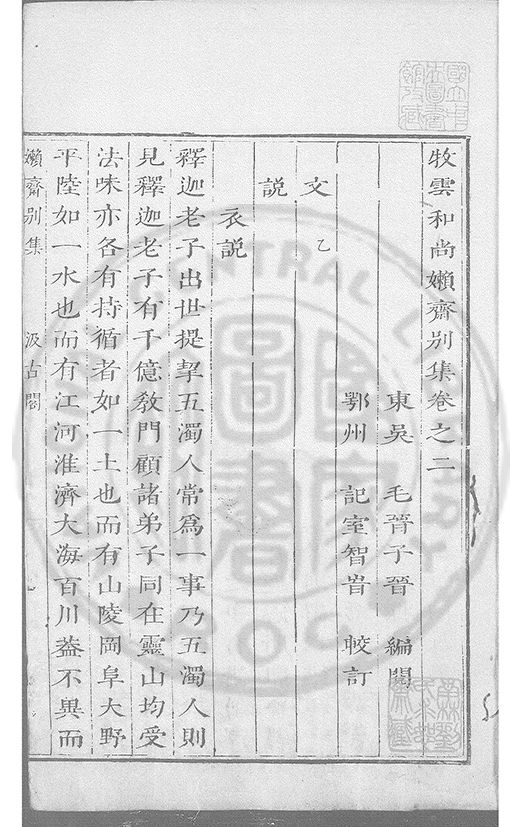 牧雲和尚嬾齋別集卷之二
東吳 毛晉子晉 編閱
鄂州 記室智旹 較訂
文 乙
説
衣説
釋迦老子出世提挈五濁人常爲一事乃五濁人則
見釋迦老子有千億敎門顧諸弟子同在靈山均受
法味亦各有持循者如一土也而有山陵岡阜大野
平陸如一水也而有江河淮濟大海百川葢不異而
嬾齋別集 汲古閣